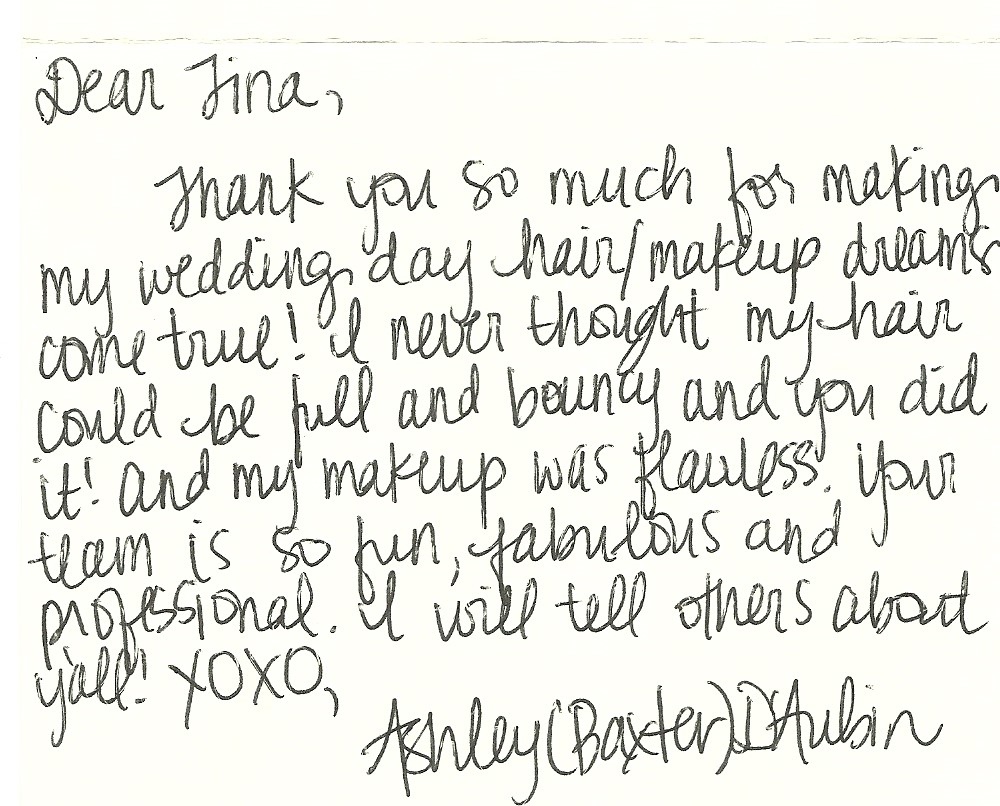 Dear Tina,
Thank you so much for making
my wedding day hair/makeup dreams
come true! I never thought my hair
could be full and bouncy and you did
it! And my makeup was flawless. Your
team is so fun, fabulous and
professional. I will tell others about
y'all! XOXO,
Ashley (Baxter) D'Aubin